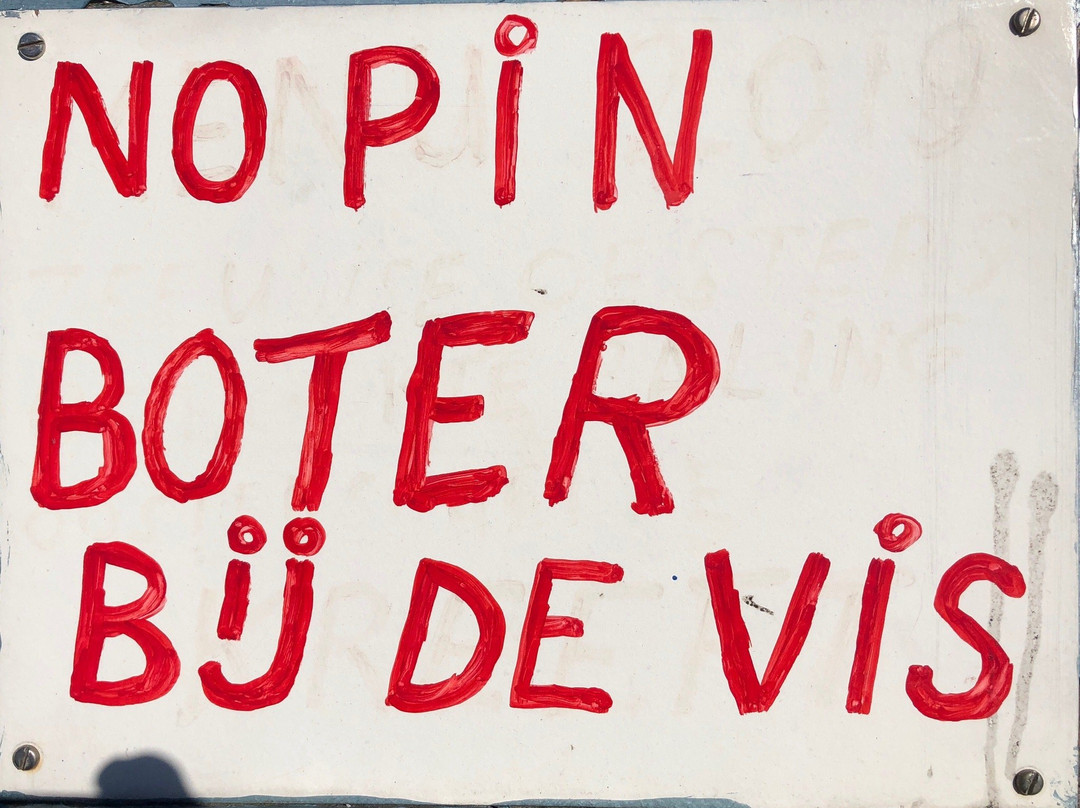 NO PiN
BOTER
BIJ DE ViS